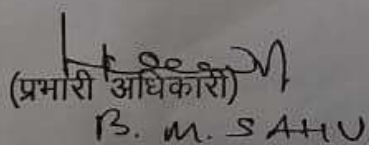 (प्रभारी अधिकारी)
B. M. SAHU